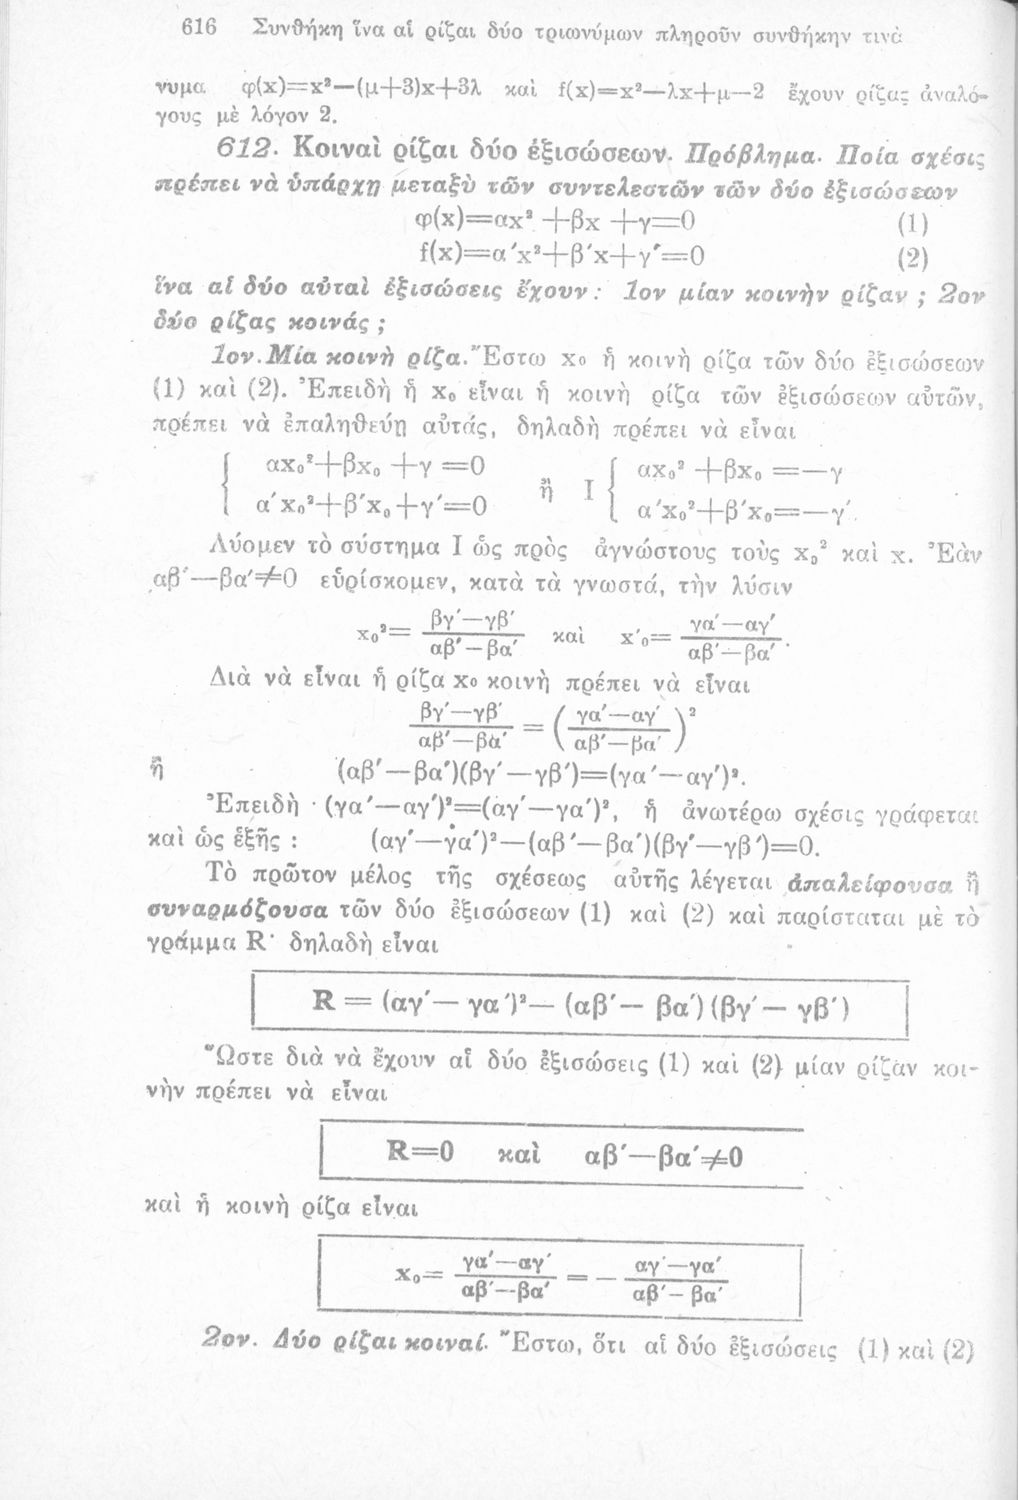 616 Συνθήκη ἵνα αἱ ρίζαι δύο τριωνύμων πληροῦν συνθήκην τινὰ
νυμα φ(x)=x²—(μ+3)x+3λ καὶ f(x)=x²—λx+μ—2 ἔχουν ρίζας ἀναλό-
γους μὲ λόγον 2.
612. Κοιναὶ ρίζαι δύο ἐξισώσεων. Πρόβλημα. Ποία σχέσις
πρέπει νὰ ὑπάρχῃ μεταξὺ τῶν συντελεστῶν τῶν δύο ἐξισώσεων
φ(x)=αx²+βx+γ=0 (1)
f(x)=α΄x²+β΄x+γ΄=0 (2)
ἵνα αἱ δύο αὐταὶ ἐξισώσεις ἔχουν: 1ον μίαν κοινὴν ρίζαν ; 2ον
δύο ρίζας κοινάς ;
1ον. Μία κοινὴ ρίζα. Ἔστω x₀ ἡ κοινὴ ρίζα τῶν δύο ἐξισώσεων
(1) καὶ (2). Ἐπειδὴ ἡ x₀ εἶναι ἡ κοινὴ ρίζα τῶν ἐξισώσεων αὐτῶν,
πρέπει νὰ ἐπαληθεύῃ αὐτάς, δηλαδὴ πρέπει νὰ εἶναι
{ αx₀²+βx₀+γ=0 ἢ Ι { αx₀²+βx₀=—γ
α΄x₀²+β΄x₀+γ΄=0 α΄x₀²+β΄x₀=—γ΄.
Λύομεν τὸ σύστημα Ι ὡς πρὸς ἀγνώστους τοὺς x₀² καὶ x. Ἐὰν
αβ΄—βα΄≠0 εὑρίσκομεν, κατὰ τὰ γνωστά, τὴν λύσιν
x₀²= (βγ΄—γβ΄)/(αβ΄—βα΄) καὶ x΄₀= (γα΄—αγ΄)/(αβ΄—βα΄).
Διὰ νὰ εἶναι ἡ ρίζα x₀ κοινὴ πρέπει νὰ εἶναι
(βγ΄—γβ΄)/(αβ΄—βα΄) = ((γα΄—αγ΄)/(αβ΄—βα΄))²
ἢ (αβ΄—βα΄)(βγ΄—γβ΄)=(γα΄—αγ΄)².
Ἐπειδὴ (γα΄—αγ΄)²=(αγ΄—γα΄)², ἡ ἀνωτέρω σχέσις γράφεται
καὶ ὡς ἑξῆς : (αγ΄—γα΄)²—(αβ΄—βα΄)(βγ΄—γβ΄)=0.
Τὸ πρῶτον μέλος τῆς σχέσεως αὐτῆς λέγεται ἀπαλείφουσα ἢ
συναρμόζουσα τῶν δύο ἐξισώσεων (1) καὶ (2) καὶ παρίσταται μὲ τὸ
γράμμα R· δηλαδὴ εἶναι
R = (αγ΄— γα΄)²— (αβ΄— βα΄) (βγ΄— γβ΄)
Ὥστε διὰ νὰ ἔχουν αἱ δύο ἐξισώσεις (1) καὶ (2) μίαν ρίζαν κοι-
νὴν πρέπει νὰ εἶναι
R=0 καὶ αβ΄—βα΄≠0
καὶ ἡ κοινὴ ρίζα εἶναι
x₀= (γα΄—αγ΄)/(αβ΄—βα΄) = — (αγ΄—γα΄)/(αβ΄—βα΄)
2ον. Δύο ρίζαι κοιναί. Ἔστω, ὅτι αἱ δύο ἐξισώσεις (1) καὶ (2)